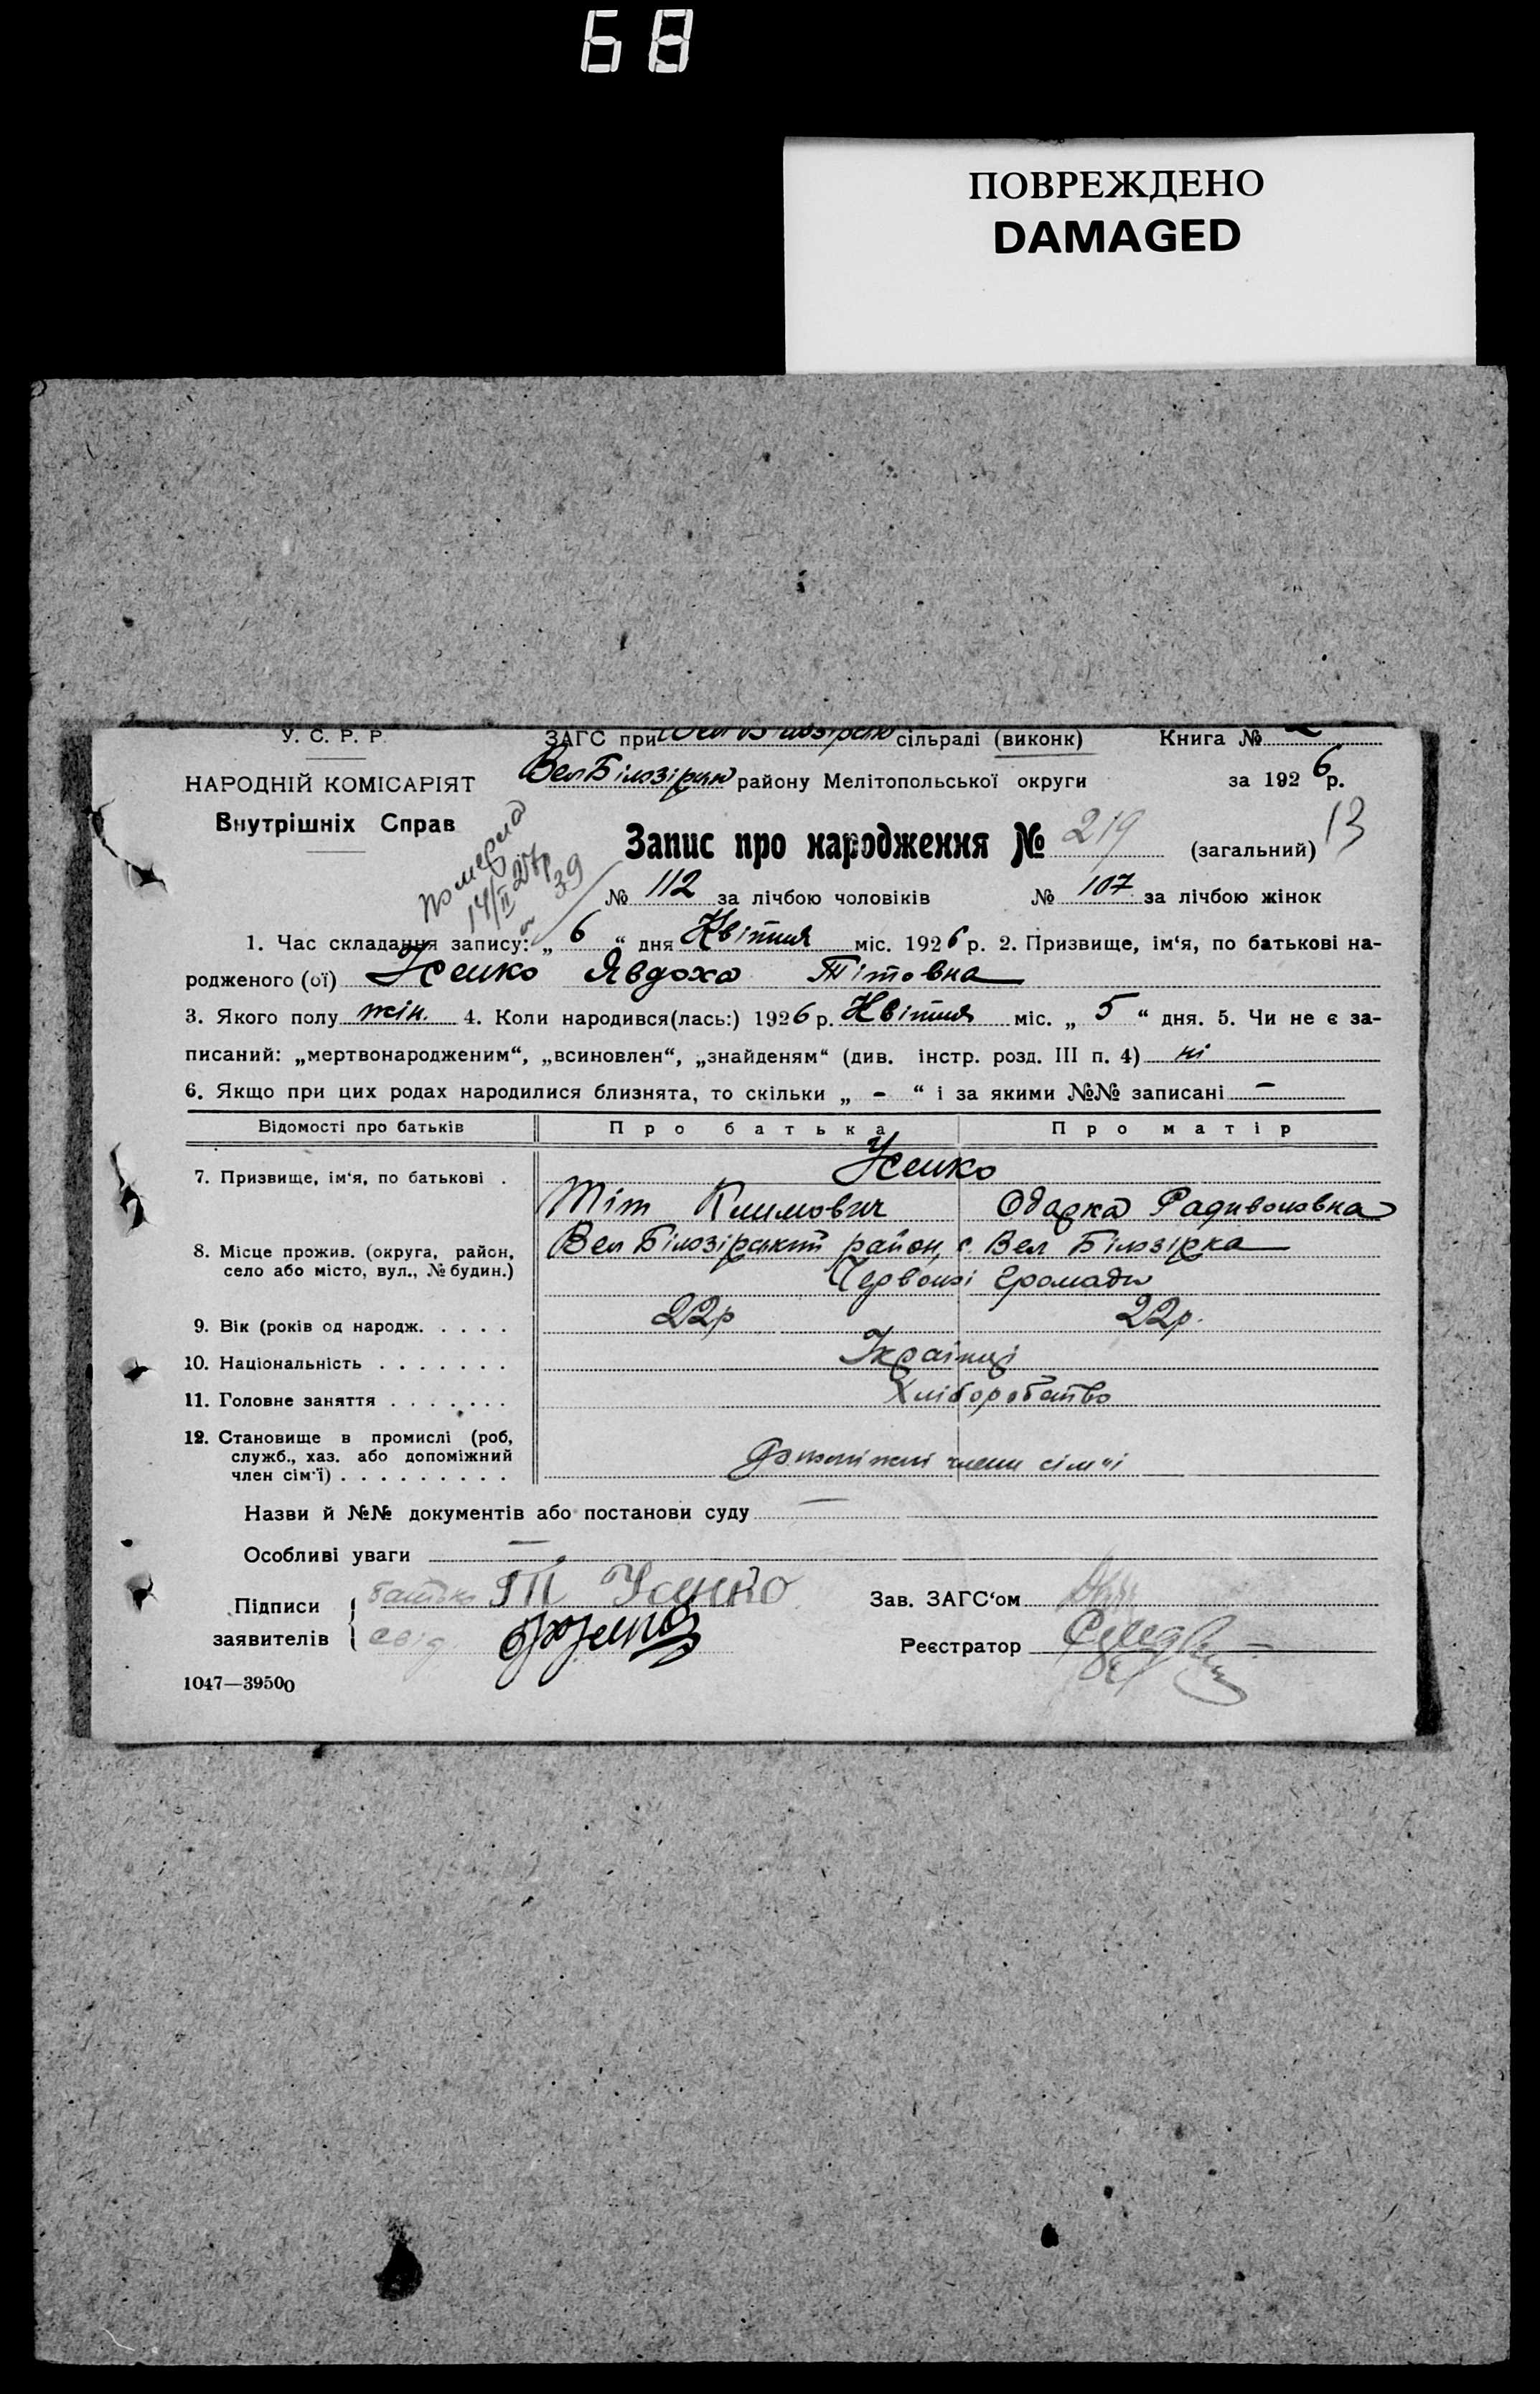 68
ПОВРЕЖДЕНО
DAMAGED
У. С. Р. Р.
ЗАГС при сільраді (виконк) Книга №
НАРОДНІЙ КОМІСАРІЯТ
ВелБілозірськ району Мелітопольської округи за 1926 р.
Внутрішніх Справ
Запис про народження № 219 (загальний) 13
померла 14/II 27р
№ 39
№ 112 за лічбою чоловіків № 107 за лічбою жінок
1. Час складання запису: „ 6 “ дня Квітня міс. 1926 р. 2. Призвище, ім‘я, по батькові на-
родженого (ої) Усенко Явдоха Тітовна
3. Якого полу жін. 4. Коли народився(лась:) 1926 р. Квітня міс. „ 5 “ дня. 5. Чи не є за-
писаний: „мертвонародженим“, „всиновлен“, „знайденям“ (див. інстр. розд. III п. 4) ні
6. Якщо при цих родах народилися близнята, то скільки „ - “ і за якими №№ записані —
Відомості про батьків Про батька Про матір
7. Призвище, ім‘я, по батькові . Усенко
Тіт Климович Одарка Радивоновна
8. Місце прожив. (округа, район, Вел Білозірський район, с. Вел Білозірка
село або місто, вул., № будин.) Червоної Громади
9. Вік (років од народж. . . . . 22р 22р.
10. Національність . . . . . . . Українці
11. Головне заняття . . . . . . . Хліборобство
12. Становище в промислі (роб,
служб., хаз. або допоміжний
член сім‘ї) . . . . . . . . . Допоміжні члени сім'ї
Назви й №№ документів або постанови суду —
Особливі уваги —
Підписи батько Т Усенко Зав. ЗАГС‘ом
заявителів свід. Реєстратор
1047—39500